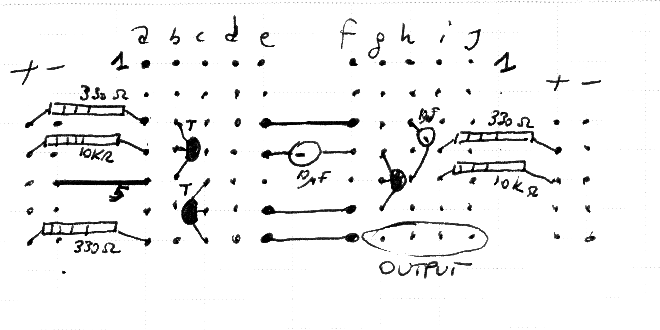 a b c d e f g h i j
+ - 1 1 + -
330Ω
T 10µF 330Ω
10KΩ 10µF 10KΩ
5 T
330Ω
OUTPUT